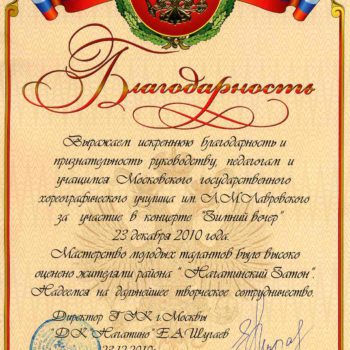 Благодарность
Выражаем искреннюю благодарность и
признательность руководству, педагогам и
учащимся Московского государственного
хореографического училища им Л.М.Лавровского
за участие в концерте "Зимний вечер"
23 декабря 2010 года.
Мастерство молодых талантов было высоко
оценено жителями района " Нагатинский Затон".
Надеемся на дальнейшее творческое сотрудничество.
Директор ГУК г.Москвы
ДК Нагатино" Е.А.Шугаев
23.12.2010